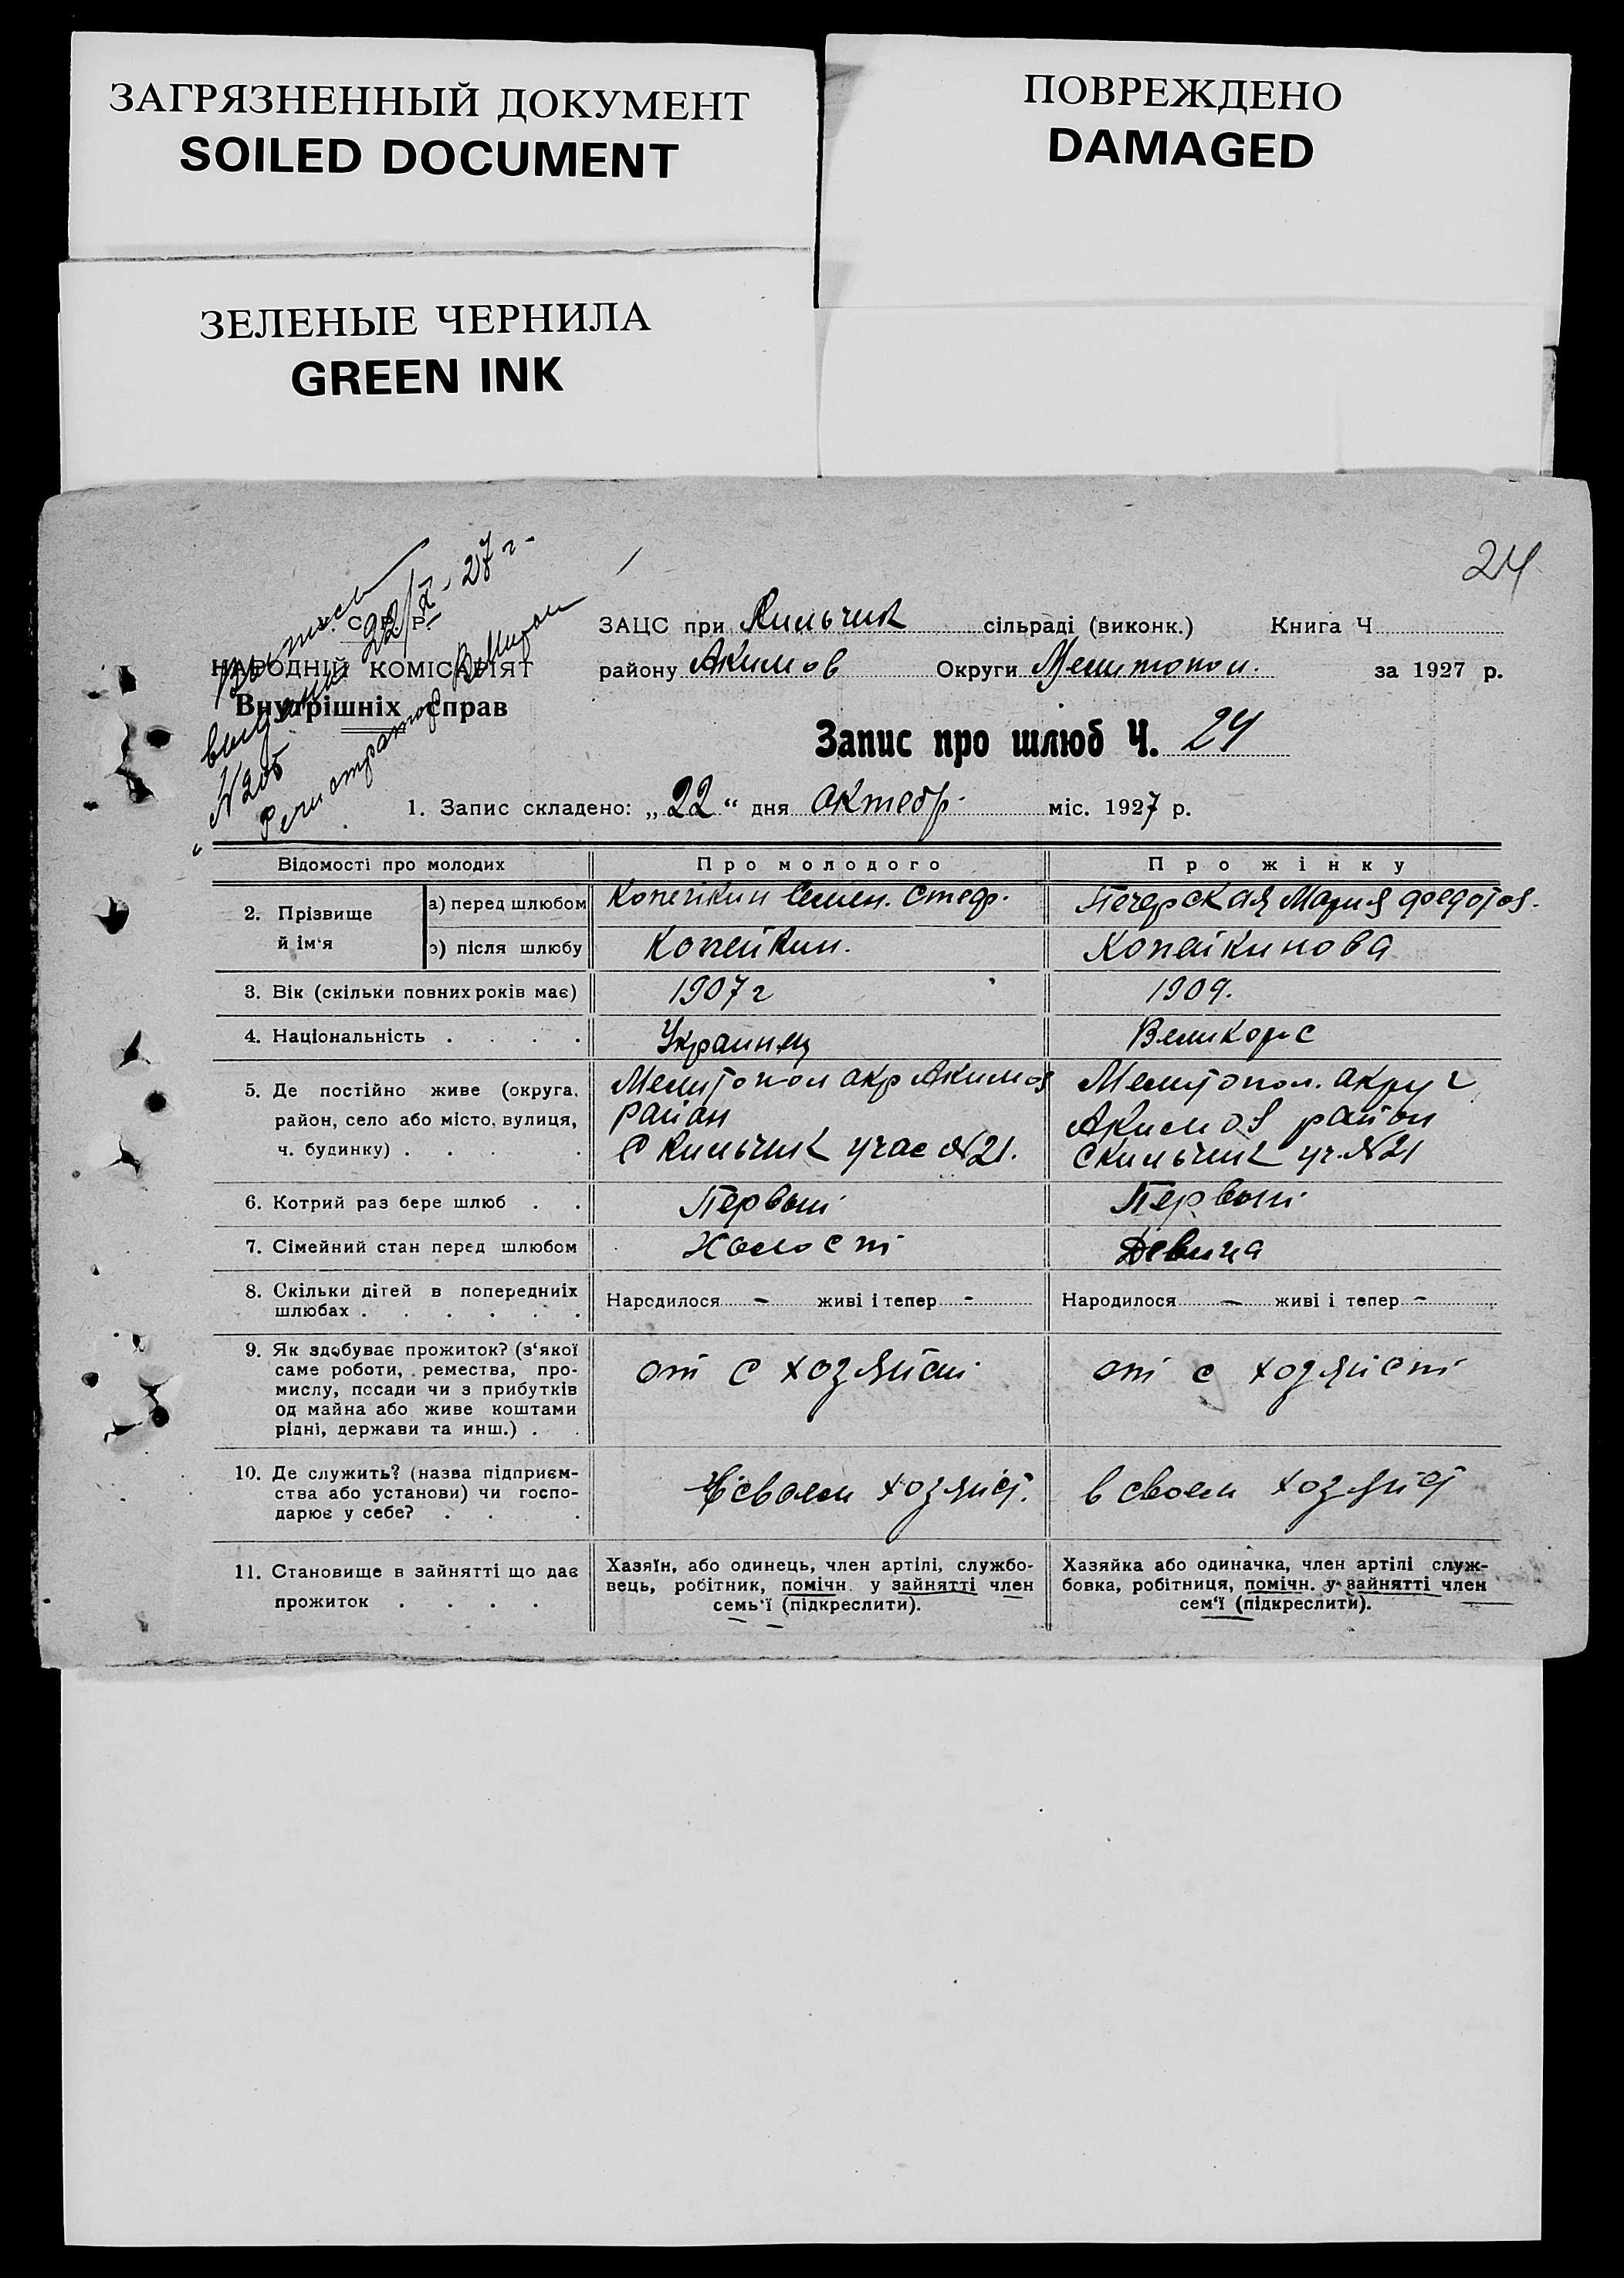 ЗАГРЯЗНЕННЫЙ ДОКУМЕНТ
SOILED DOCUMENT
ПОВРЕЖДЕНО
DAMAGED
ЗЕЛЕНЫЕ ЧЕРНИЛА
GREEN INK
24
22/X-27 г.
N 205
У. С. Р. Р.
НАРОДНІЙ КОМІСАРІЯТ
Внутрішніх справ
ЗАЦС при Кильчик сільраді (виконк.) Книга Ч
району Акимов Округи Мелитопол. за 1927 р.
Запис про шлюб Ч. 24
1. Запис складено: „22“ дня октебр. міс. 1927 р.
Відомості про молодих Про молодого Про жінку
2. Прізвище й ім‘я а) перед шлюбом Копейкин Семен. Стеф. Печерская Мария Федотов.
б) після шлюбу Копейкин. Копейкинова
3. Вік (скільки повних років має) 1907 г 1909.
4. Національність . . . . Украинец Великорс
5. Де постійно живе (округа, Мелитопол окр Акимов Мелитопол. округ
район, село або місто, вулиця, район Акимов район
ч. будинку) . . . . С Кильчик учас №21. С Кильчик уч. №21
6. Котрий раз бере шлюб . . Первый Первый
7. Сімейний стан перед шлюбом Холост Девица
8. Скільки дітей в попередниіх шлюбах . . . . . . Народилося – живі і тепер – Народилося – живі і тепер –
9. Як здобуває прожиток? (з‘якої
саме роботи, ремества, про-
мислу, посади чи з прибутків
од майна або живе коштами
рідні, держави та инш.) . .
от с хозяйст от с хозяйст
10. Де служить? (назва підприєм-
ства або установи) чи госпо-
дарює у себе? . . .
своем хозяйст. в своем хозяйст
11. Становище в зайнятті що дає
прожиток . . . .
Хазяїн, або одинець, член артілі, службо-
вець, робітник, помічн. у зайнятті член
семь‘ї (підкреслити).
Хазяйка або одиначка, член артілі служ-
бовка, робітниця, помічн. у зайнятті член
сем‘ї (підкреслити).